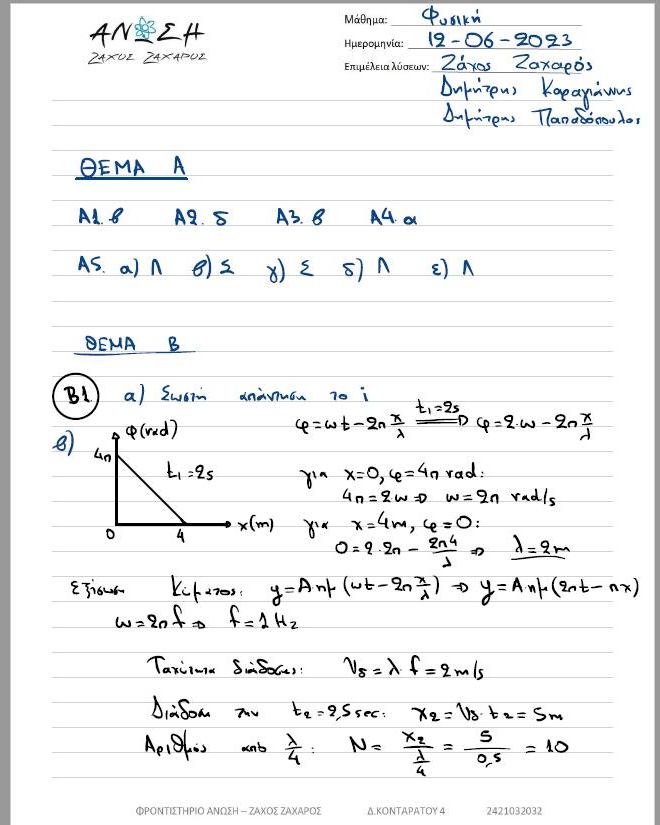 ΑΝΩΣΗ
ΖΑΧΟΣ ΖΑΧΑΡΟΣ
Μάθημα: Φυσική
Ημερομηνία: 12-06-2023
Επιμέλεια λύσεων: Ζάχος Ζαχαρός
Δημήτρης Καραγιάννης
Δημήτρης Παπαδόπουλος
ΘΕΜΑ Α
Α1. β Α2. δ Α3. β Α4. α
Α5. α) Λ β) Σ γ) Σ δ) Λ ε) Λ
ΘΕΜΑ Β
Β1. α) Σωστή απάντηση το i
β) φ(rad) 4π t₁=2s 0 4 x(m)
φ=ωt-2π x/λ t₁=2s ⇒ φ=2·ω-2π x/λ
για x=0, φ=4π rad:
4π=2ω ⇒ ω=2π rad/s
για x=4m, φ=0:
0=2·2π - 2π4/λ ⇒ λ=2m
Εξίσωση Κύματος: y=Aημ(ωt-2π x/λ) ⇒ y=Aημ(2πt-πx)
ω=2πf ⇒ f=1Hz
Ταχύτητα διάδοσης: V₈=λ·f=2m/s
Διάδοση την t₂=2,5sec: x₂=Vδ·t₂=5m
Αριθμός από λ/4: N = x₂/(λ/4) = 5/0,5 = 10
ΦΡΟΝΤΙΣΤΗΡΙΟ ΑΝΩΣΗ – ΖΑΧΟΣ ΖΑΧΑΡΟΣ Δ.ΚΟΝΤΑΡΑΤΟΥ 4 2421032032